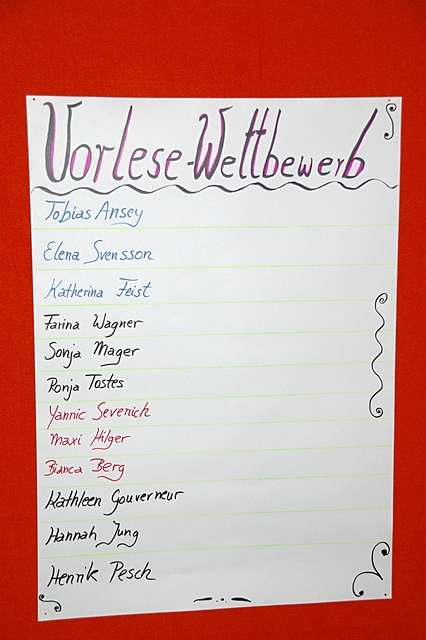 Vorlese-Wettbewerb
Tobias Ansey
Elena Svensson
Katherina Feist
Farina Wagner
Sonja Mager
Ronja Tostes
Yannic Sevenich
Maxi Hilger
Bianca Berg
Kathleen Gouverneur
Hannah Jung
Henrik Pesch